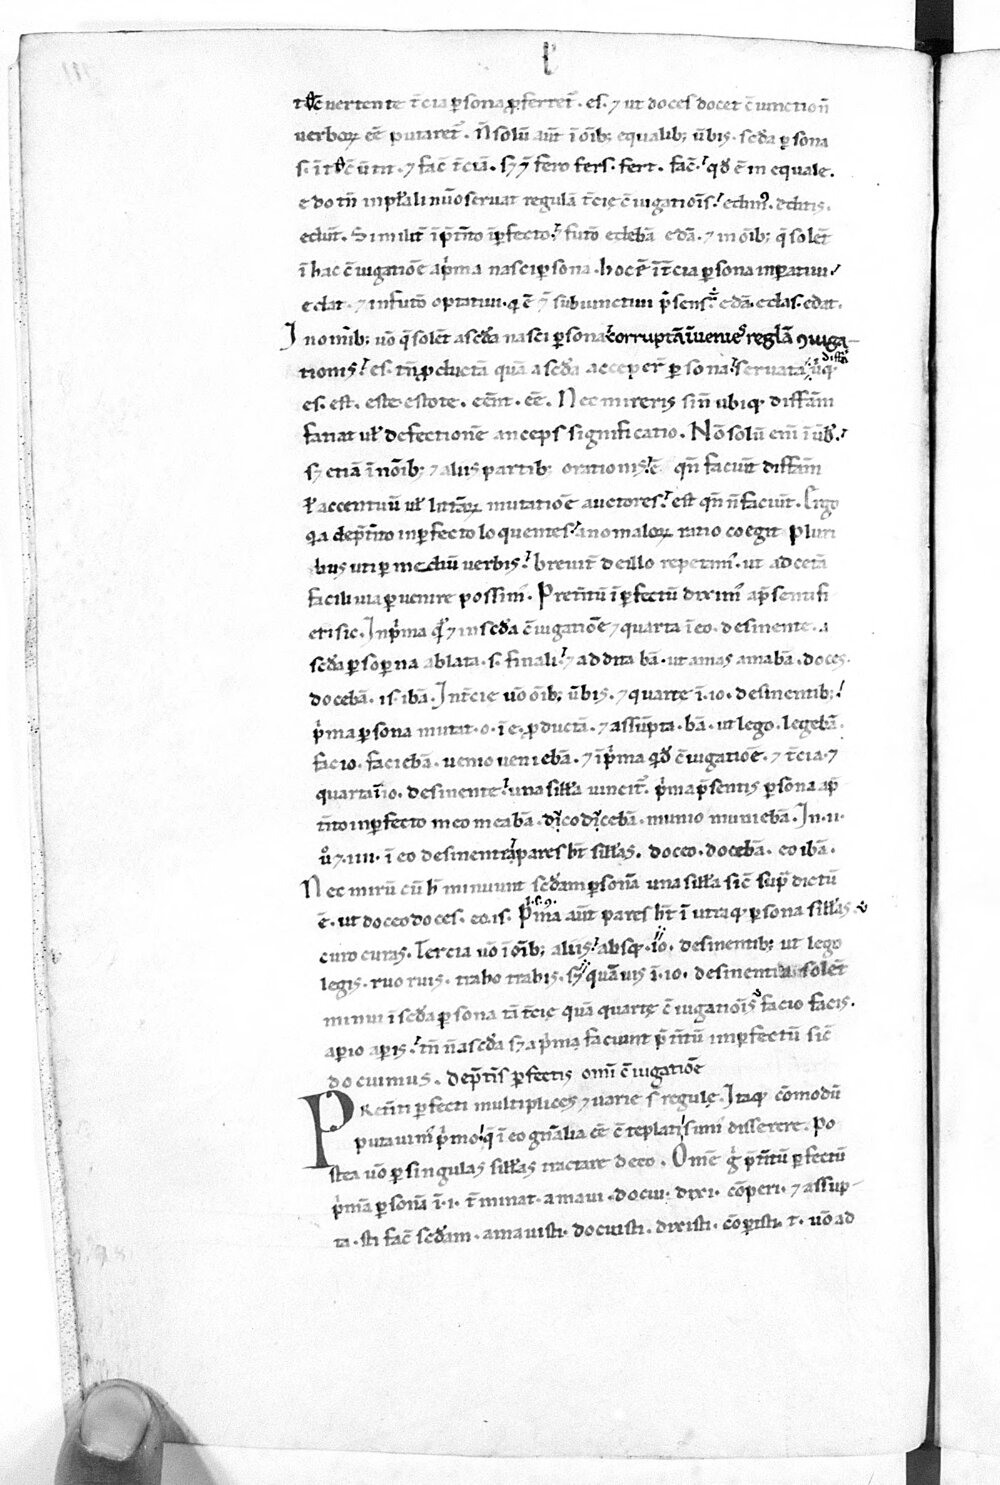 uertente t̄cia ꝑsona ꝓferret̄. es. ⁊ ut doces docet c̄iunction̄
uerboꝝ eē putaret̄. N̄ solū aūt ī oīb; equalib; ūbis. sc̄da ꝑsona
fac̄ t̄ciā. fero fers. fert. fac̄. qđ ē in equale.
edo tn̄ in pl̄ali nūo seruat regulā t̄cię c̄iugationīs. edim᾽. editis.
edūt. Similit̄ ī p̄t̄ito īꝑfecto. ⁊ futo edebā edā. ⁊ in oīb; q̄ solēt
ī hac c̄iugatiōe a p̄ma nasci ꝑsona. hoc ē ī t̄cia ꝑsona inꝑatiui
edat. ⁊ in futo optatiui. q ē ⁊ subiunctiui p̄sens. edā. edas. edat.
In oīnib; uō q̄ solēt a sc̄da nasci ꝑsona corruptā īuenies reglā ꝯiuga
tionis. es. tn̄ ꝓductā quā a sc̄da acceper̄ ꝑsona. seruata
es. est. este. estote. eēnt. eē. Nec mireris sin̄ ubiqꝫ diffām
faciat ul̄ defectionē anceps significatio. Nō solū eni ī ūb.
sꝫ etiā ī nōib; ⁊ aliis partib; orationis. qn̄ faciūt diffām
ł accentuū ul̄ litt̄aꝝ mutatiōe auctores. est qn̄ n̄ faciūt. Ergo
qa de p̄t̄ito inꝑfecto loquentes. anomaloꝝ ratio coegit pluri
bus uti ꝑ mediū uerbis. breuit̄ de illo repetim᾽. ut ad cetā
facili uia ꝑuenire possim᾽. Pret̄itū īꝑfectū dixim᾽ a p̄senti fi
eri sic. In p̄ma ⁊ in sc̄da c̄iugatiōe ⁊ quarta ī eo. desinente. a
sc̄da ꝑsona ablata. s. finali. ⁊ addita bā. ut amas amabā. doces.
docebā. is. ibā. In t̄cię uō oīb; ūbis. ⁊ quartę ī. io. desinentib;
p̄ma ꝑsona mutat. o. ī e. ꝓductā. ⁊ assūpta. bā. ut lego. legebā.
facio. faciebā. uenio ueniebā. ⁊ ī p̄ma c̄iugatiōe. ⁊ t̄cia. ⁊
quarta ī io. desinente. una sill̄a uincit̄. p̄ma p̄sentis ꝑsona a p̄
t̄ito inꝑfecto meo meabā. dico dicebā. munio muniebā. In. ii.
ū ⁊. iiii. ī eo desinenti pares h̄t sill̄as. doceo. docebā. eo ibā.
Nec mirū cū h̄ minuunt sc̄dam ꝑsonā una sill̄a sic̄ sup̄ dictū
ē. ut doceo doces. eo. is. P̄ma aūt pares h̄t ī utraqꝫ ꝑsona sill̄as
curo curas. Tercia uō ī oīb; aliis. absqꝫ. io. desinentib; ut lego
legis. ruo ruis. traho trahis. sꝫ quāuis ī. io. desinentia solēt
minui ī sc̄da ꝑsona tā t̄cię quā quartę c̄iugationīs facio facis.
apio apis. tn̄ n̄ a sc̄da sꝫ a p̄ma faciunt p̄t̄itū imꝑfectū sic̄
docuimus. de p̄t̄is ꝑfectis om̄i c̄iugatiōe
PRet̄iti ꝑfecti multiplices ⁊ uarie s̄ regulę. Itaqꝫ cōmodū
putauim᾽ p̄mo q̄ ī eo gn̄alia eē c̄teplati sum᾽ disserere. Po
stea uō ꝑ singulas sill̄as tractare de eo. Om̄e ḡ p̄t̄itū ꝑfectū
p̄mā ꝑsonā ī. i. t̄minat. amaui. docui. dixi. cōperi. ⁊ assūp
ta. sti fac̄ sc̄dam. amauisti. docuisti. dixisti. cōperisti. t. uō ad